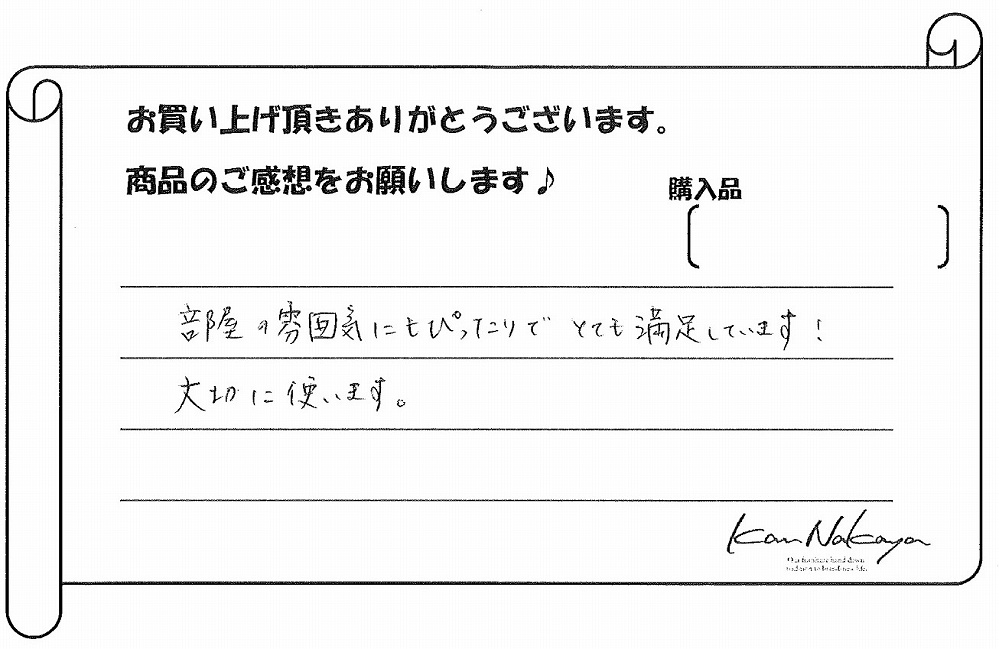 お買い上げ頂きありがとうございます。
商品のご感想をお願いします♪
購入品
部屋の雰囲気にもぴったりで とても満足しています!
大切に使います。
Kan Nakaya